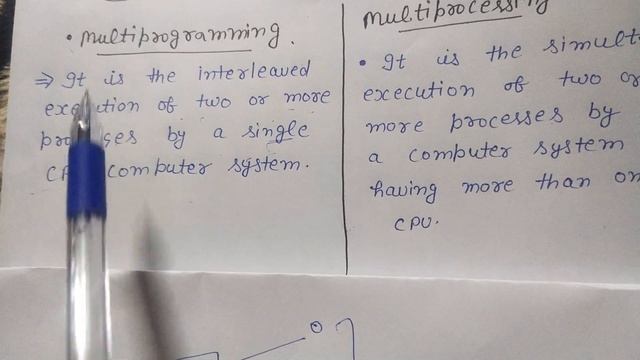 • Multiprogramming.
⇒ It is the interleaved
execution of two or more
processes by a single
CPU computer system.
Multiprocessing
• It is the simult
execution of two or
more processes by
a computer system
having more than on
CPU.